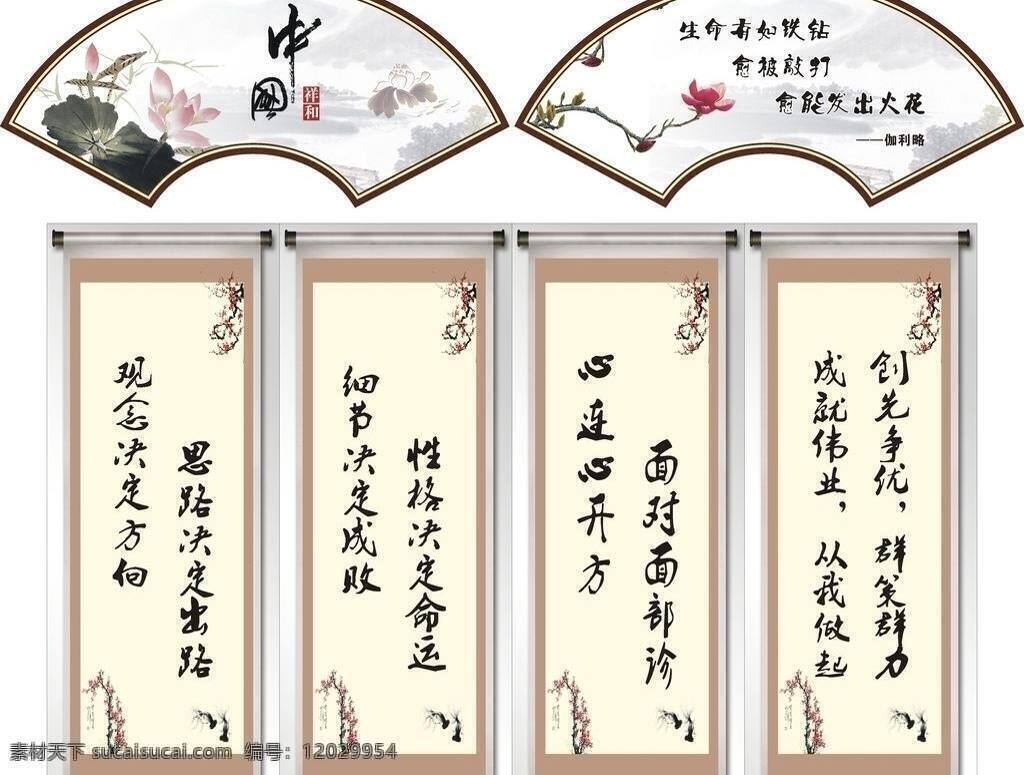 中國
祥和
生命有如铁钻
愈被敲打
愈能发出火花
——伽利略
观念决定方向
思路决定出路
细节决定成败
性格决定命运
心连心开方
面对面部诊
创先争优，群策群力
成就伟业，从我做起
素材天下 sucaisucai.com 编号：12029954